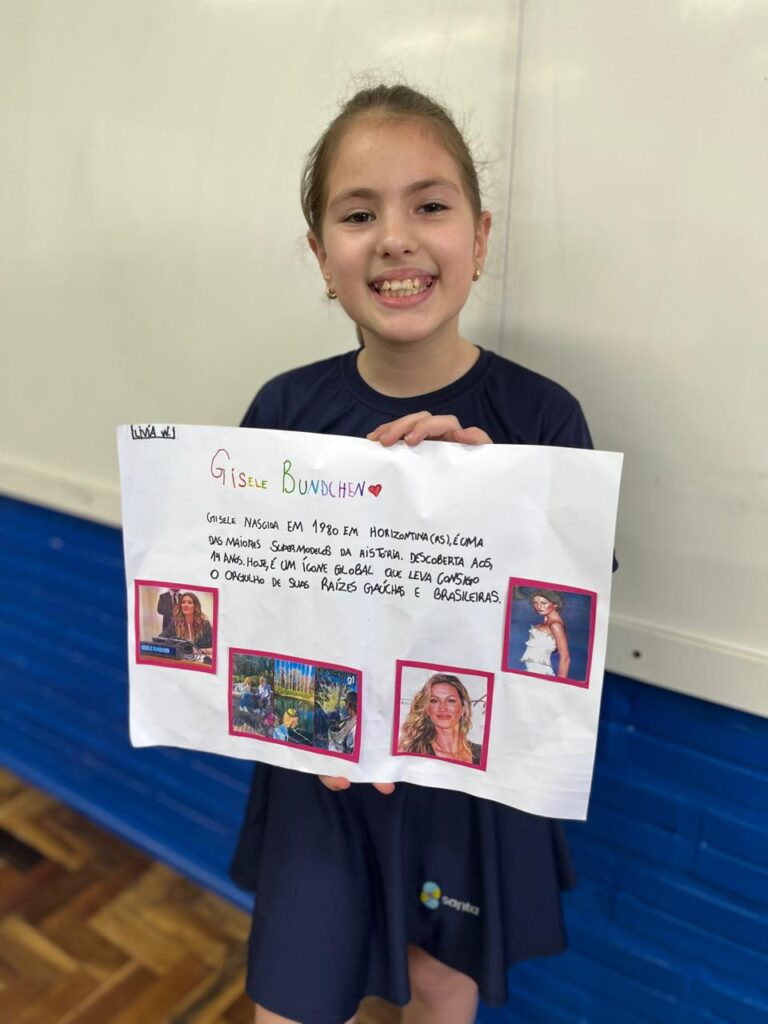 LIVIA W.
GISELE BUNDCHEN
GISELE NASCIDA EM 1980 EM HORIZONTINA(RS), É UMA
DAS MAIORES SUPERMODELOS DA HISTORIA. DESCOBERTA AOS,
14 ANOS. HOJE, É UM ÍCONE GLOBAL QUE LEVA CONSIGO
O ORGULHO DE SUAS RAÍZES GAÚCHAS E BRASILEIRAS.
GISELE BUNDCHEN
g1
santa